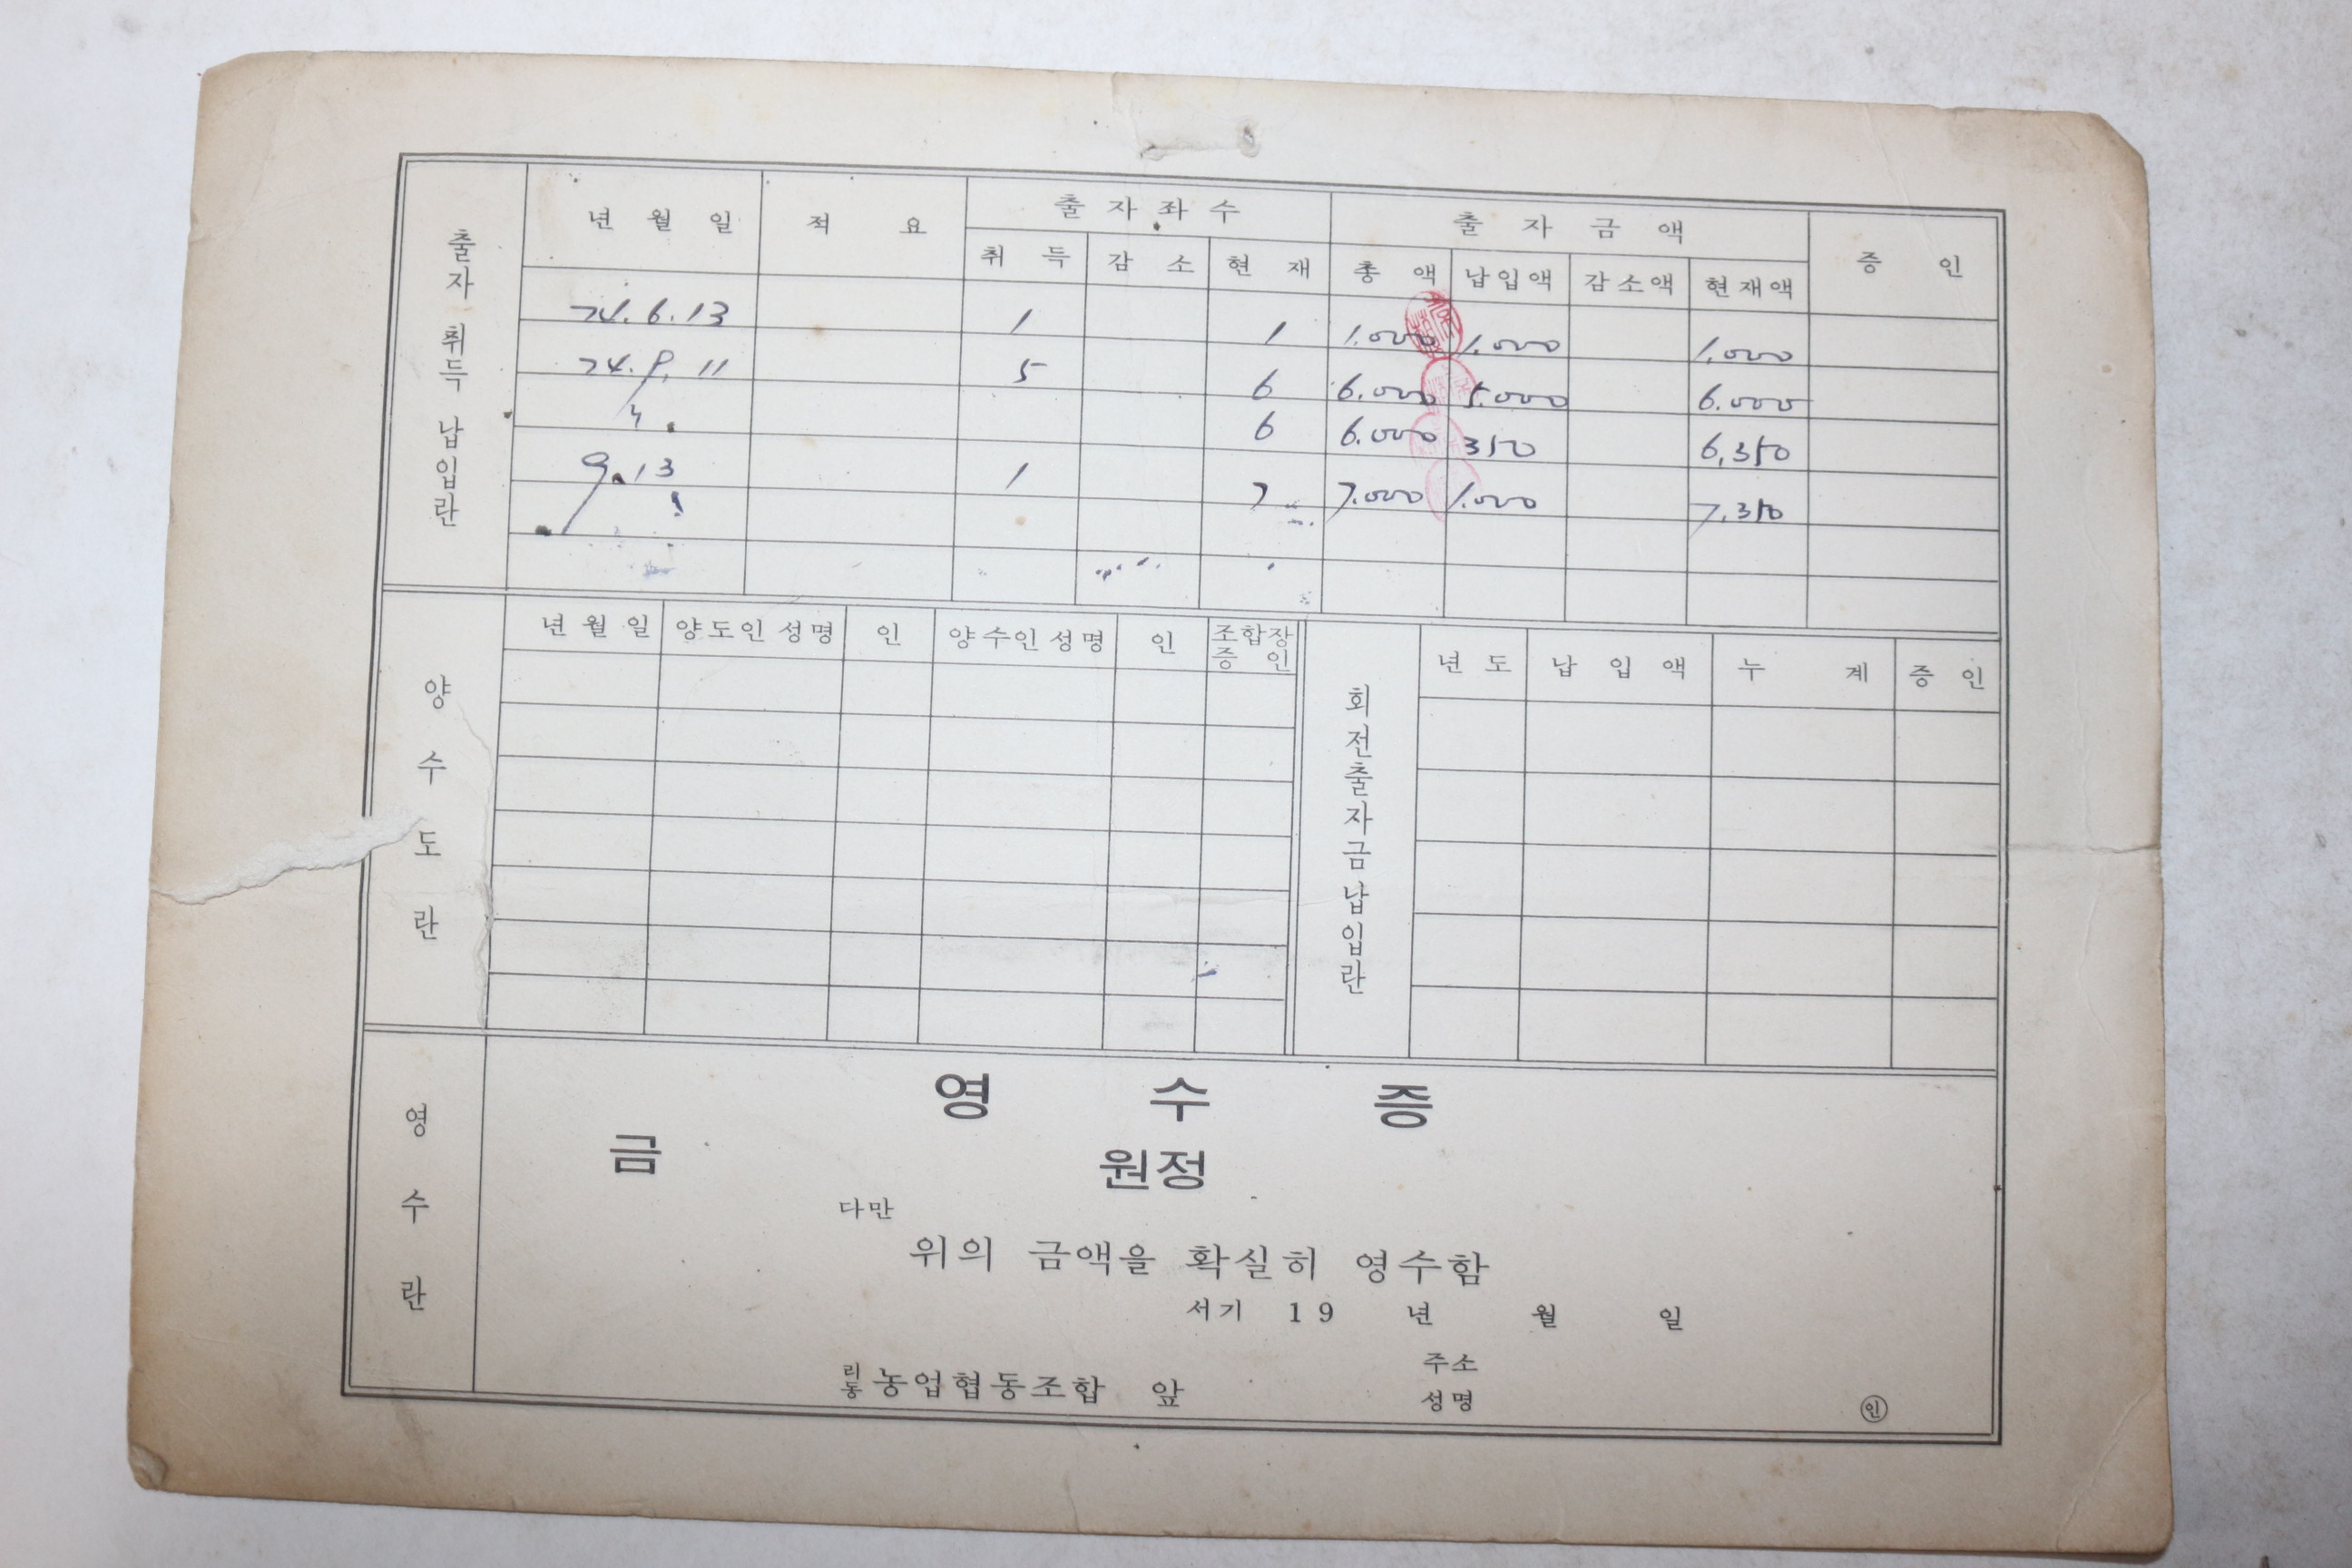 출자 취득 납입란
년 월 일 적 요 출자좌수 출자금액 증 인
취 득 감 소 현 재 총 액 납입액 감소액 현재액
74. 6. 13 1 1 1.000 1.000 1.000
74. 9. 11 5 6 6.000 5.000 6.000
〃 6 6.000 350 6,350
9. 13 1 7 7.000 1.000 7,350
양 수 도 란
년 월 일 양도인 성명 인 양수인 성명 인 조합장 증 인
회전출자금 납입란
년 도 납 입 액 누 계 증 인
영 수 란
영 수 증
금 원정
다만
위의 금액을 확실히 영수함
서기 19 년 월 일
주소
리동 농업협동조합 앞
성명 ㊞